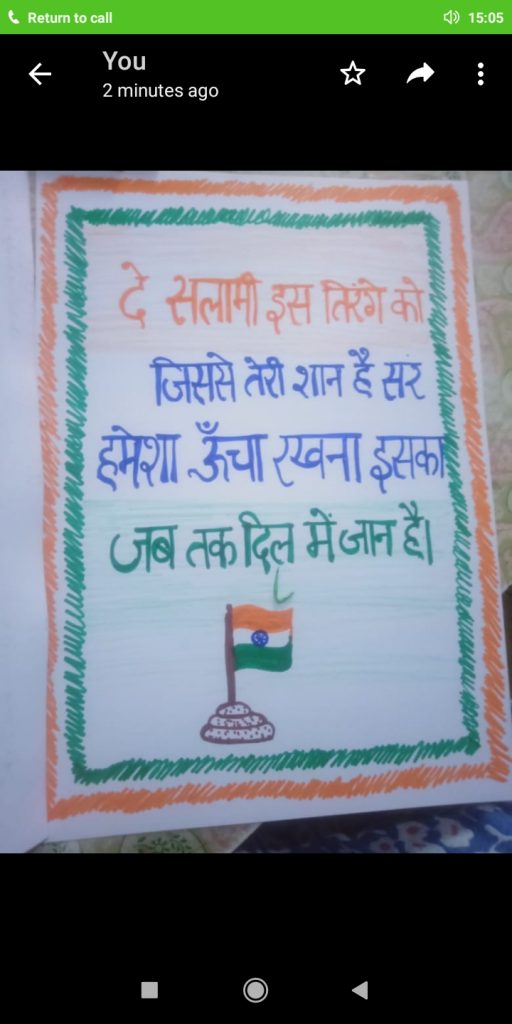 Return to call
15:05
You
2 minutes ago
दे सलामी इस तिरंगे को
जिससे तेरी शान है सर
हमेशा ऊँचा रखना इसका
जब तक दिल में जान है।